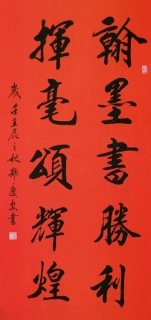 翰墨書勝利
揮毫頌輝煌
歲在壬辰之秋鄭慶安書